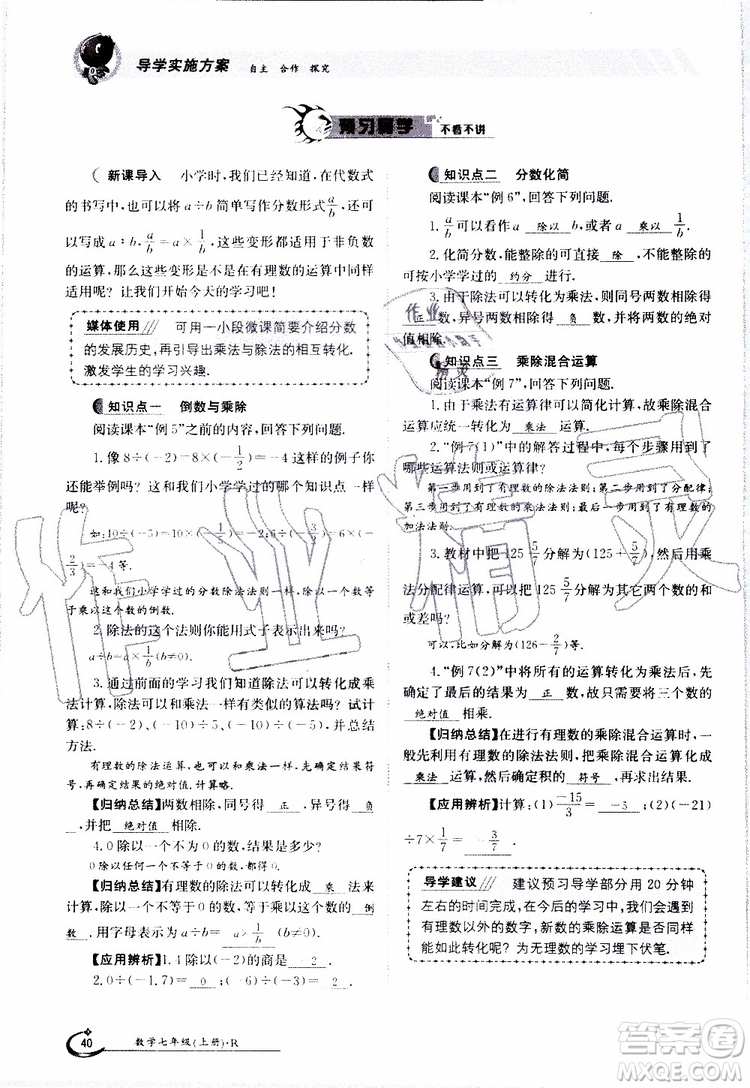 导学实施方案 自主 合作 探究
预习导学 不看不讲
新课导入 小学时,我们已经知道,在代数式
的书写中,可以将 a÷b 简单写作分数形式 a/b,还可
以变形为 a∶b, a/b=a×1/b, 这些变形都用于非负数
的运算,那么这些变形是不是在有理数的运算中同样
适用呢?让我们开始今天的学习吧!
媒体使用 可用一小段微课简要介绍分数
的发展历史,再引导出乘法与除法的相互转化.
激发学生的学习兴趣.
知识点一 倒数与乘除
阅读课本“例 5”之前的内容,回答下列问题.
1.像 8÷(-2)=8×(-1/2)=-4 这样的例子你
还能举例吗?与我们小学学过的哪个知识点一样
呢?
如:10÷(-5)=10×(-1/5)=-2;6÷(-3/2)=6×(-
2/3)=-4 等.
这和我们小学学过的分数除法法则一样,除以一个数等
于乘以这个数的倒数.
2.除法的这个法则你能用式子表示出来吗?
a÷b=a·1/b(b≠0)
3.通过前面的学习我们知道除法可以转化成乘
法,那么它是否也有和乘法类似的算法呢?试计
算:8÷(-2),(-10)÷5,(-10)÷(-5),并总结
方法.
有理数的除法运算,也可以像乘法一样,先确定结果符
号,再把结果的绝对值相除.
【归纳总结】两数相除,同号得 正 ,异号得 负
,并把 绝对值 相除.
4.0 除以一个不为 0 的数,结果是多少?
0 除以任何一个不等于 0 的数,都得 0.
【归纳总结】有理数的除法可以转化为 乘 法来
计算,除以一个不等于 0 的数,等于乘以这个数的 倒
数 .用字母表示为 a÷b=a·1/b (b≠0).
【应用辨析】1.4 除以(-2)的商是 -2 .
2.0÷(-1.7)= 0 ;(-6)÷(-3)= 2 .
知识点二 分数化简
阅读课本“例 6”,回答下列问题.
1.a/b可以看作 a 除以 b,也可以看作 a 乘以 1/b.
2.化简分数,能整除的可直接 除 ,不能整除的可
按小学学过的 约分 进行.
3.由于除法可以转化为乘法,则同号两数相除得
数,异号两数相除得 负 数,并把两数的绝对
值相除.
知识点三 乘除混合运算
阅读课本“例 7”,回答下列问题.
1.由于乘法有运算律可以简化计算,故乘除混合
运算应统一转化为 乘法 运算.
2.“例 7(1)”中的解答过程中,每个步骤用到了
哪些运算法则和运算律?
第一步用到了有理数的除法法则;第二步用到了分配律;
第三步用到了有理数的乘法法则;第四步用到了有理数的
加法法则.
3.教材中把 125 5/7 分解为(125+5/7),再利用乘
法分配律运算,可以把 125 5/7 分解为其它两个数的和
或差吗?
可以.如分解为(126-2/7)等.
4.“例 7(2)”中将所有的运算转化为乘法后,先
确定了最后的结果为 正 数,故只需将三个数的
绝对值 相乘.
【归纳总结】在进行有理数的乘除混合运算时,一
般先利用有理数的除法法则,把乘除混合运算化成
乘法 运算,然后确定积的 符号 ,再求出结果.
【应用辨析】计算:(1) -15/3 = -5 ;(2)(-3)
÷7×1/7= -3/7 .
导学建议 建议预习导学部分用 20 分钟
左右的时间完成,在今后的学习中,我们会遇到
有理数以外的数字,新数的乘除运算是否仍然
能如此转化?为无理数的学习埋下伏笔.
40 数学七年级(上册)·R
作业精灵